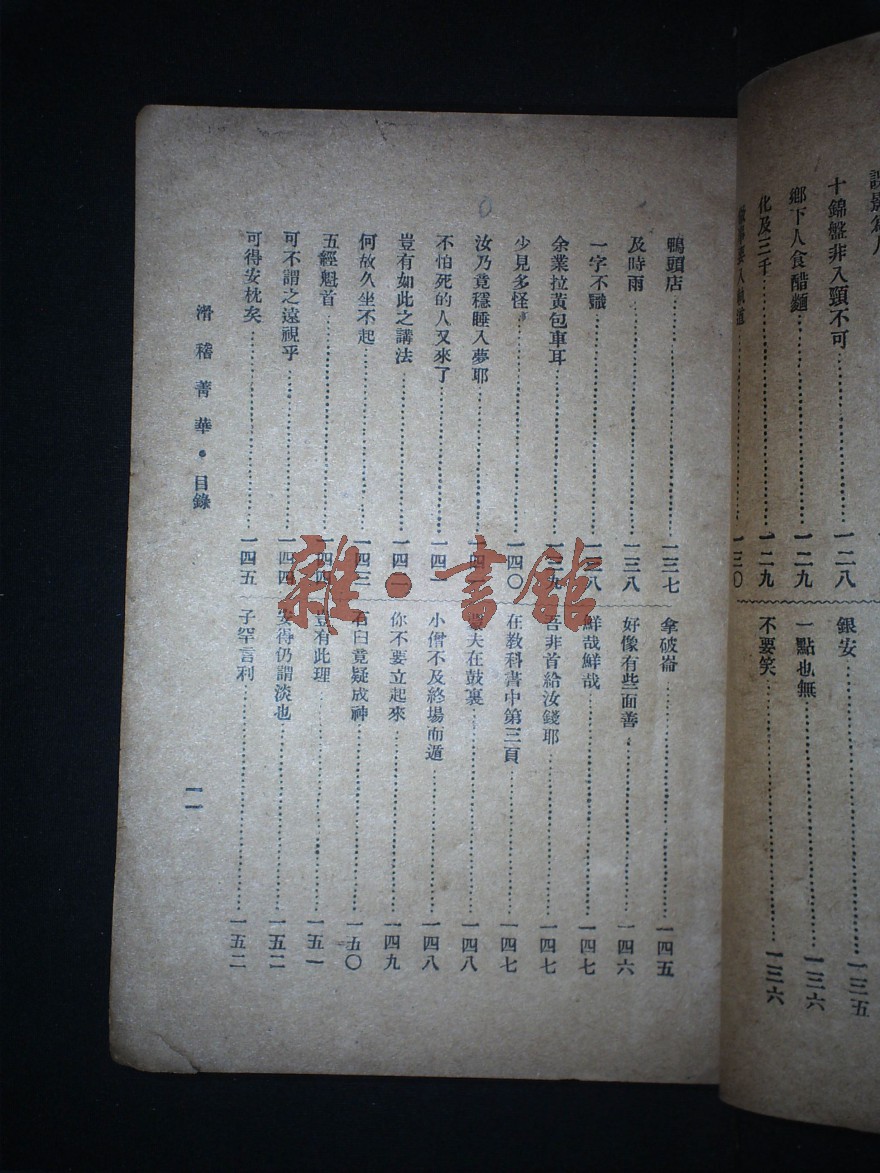 十錦盤非入頸不可……一二八
鄉下人食醋麵……一二九
化及三千……一二九
一三〇
銀安……一三五
一點也無……一三六
不要笑……一三六
鴨頭店……一三七
及時雨……一三八
一字不識……一三八
余業拉黃包車耳……一三九
少見多怪……一四〇
汝乃竟穩睡入夢耶……一四
不怕死的人又來了……一四
豈有如此之講法……一四
何故久坐不起……一四三
五經魁首……一四四
可不謂之遠視乎……一四四
可得安枕矣……一四五
拿破崙……一四五
好像有些面善……一四六
鮮哉鮮哉……一四七
吾非首給汝錢耶……一四七
在教科書中第三頁……一四七
夫在鼓裏……一四八
小僧不及終場而遁……一四八
你不要立起來……一四九
石臼竟疑成神……一五〇
豈有此理……一五一
安得仍謂淡也……一五二
子罕言利……一五二
滑稽菁華·目錄
一一
雜·書館